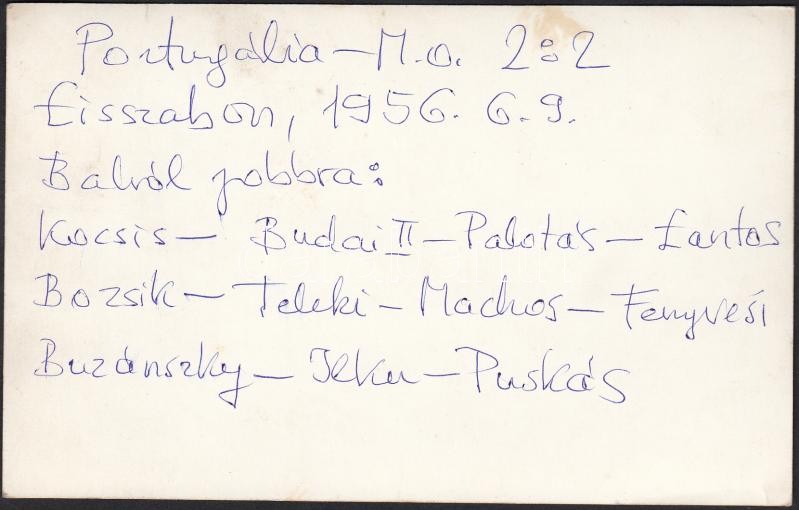 Portugália – M.o. 2:2
Lisszabon, 1956. 6. 9.
Balról jobbra:
Kocsis – Budai II – Palotás – Lantos
Bozsik – Teleki – Machos – Fenyvesi
Buzánszky – Ilku – Puskás